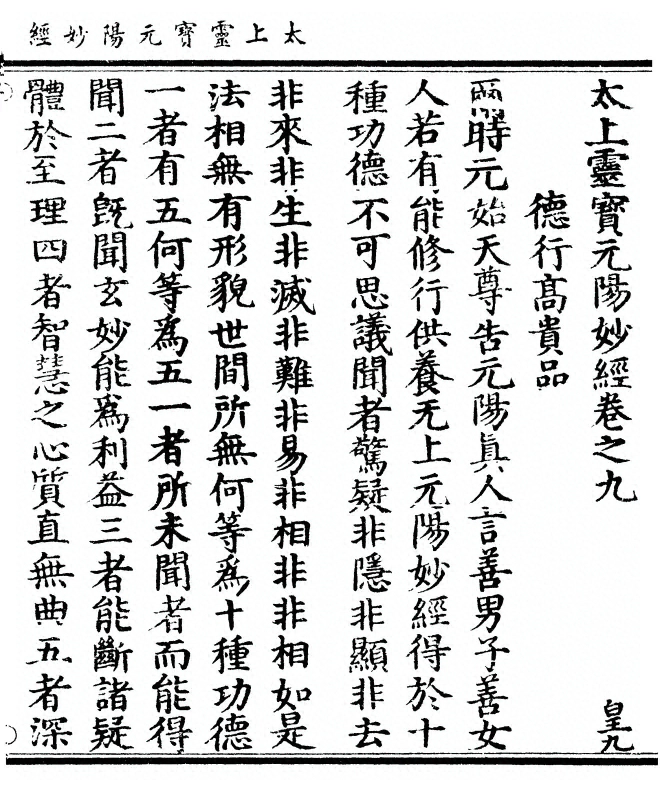 太上靈寶元陽妙經
太上靈寶元陽妙經卷之九 皇九
德行髙貴品
爾時元始天尊告元陽真人言善男子善女
人若有能修行供養无上元陽妙經得於十
種功德不可思議聞者驚疑非隱非顯非去
非來非生非滅非難非易非相非非相如是
法相無有形貌世間所無何等爲十種功德
一者有五何等爲五一者所未聞者而能得
聞二者旣聞玄妙能爲利益三者能斷諸疑
體於至理四者智慧之心質直無曲五者深